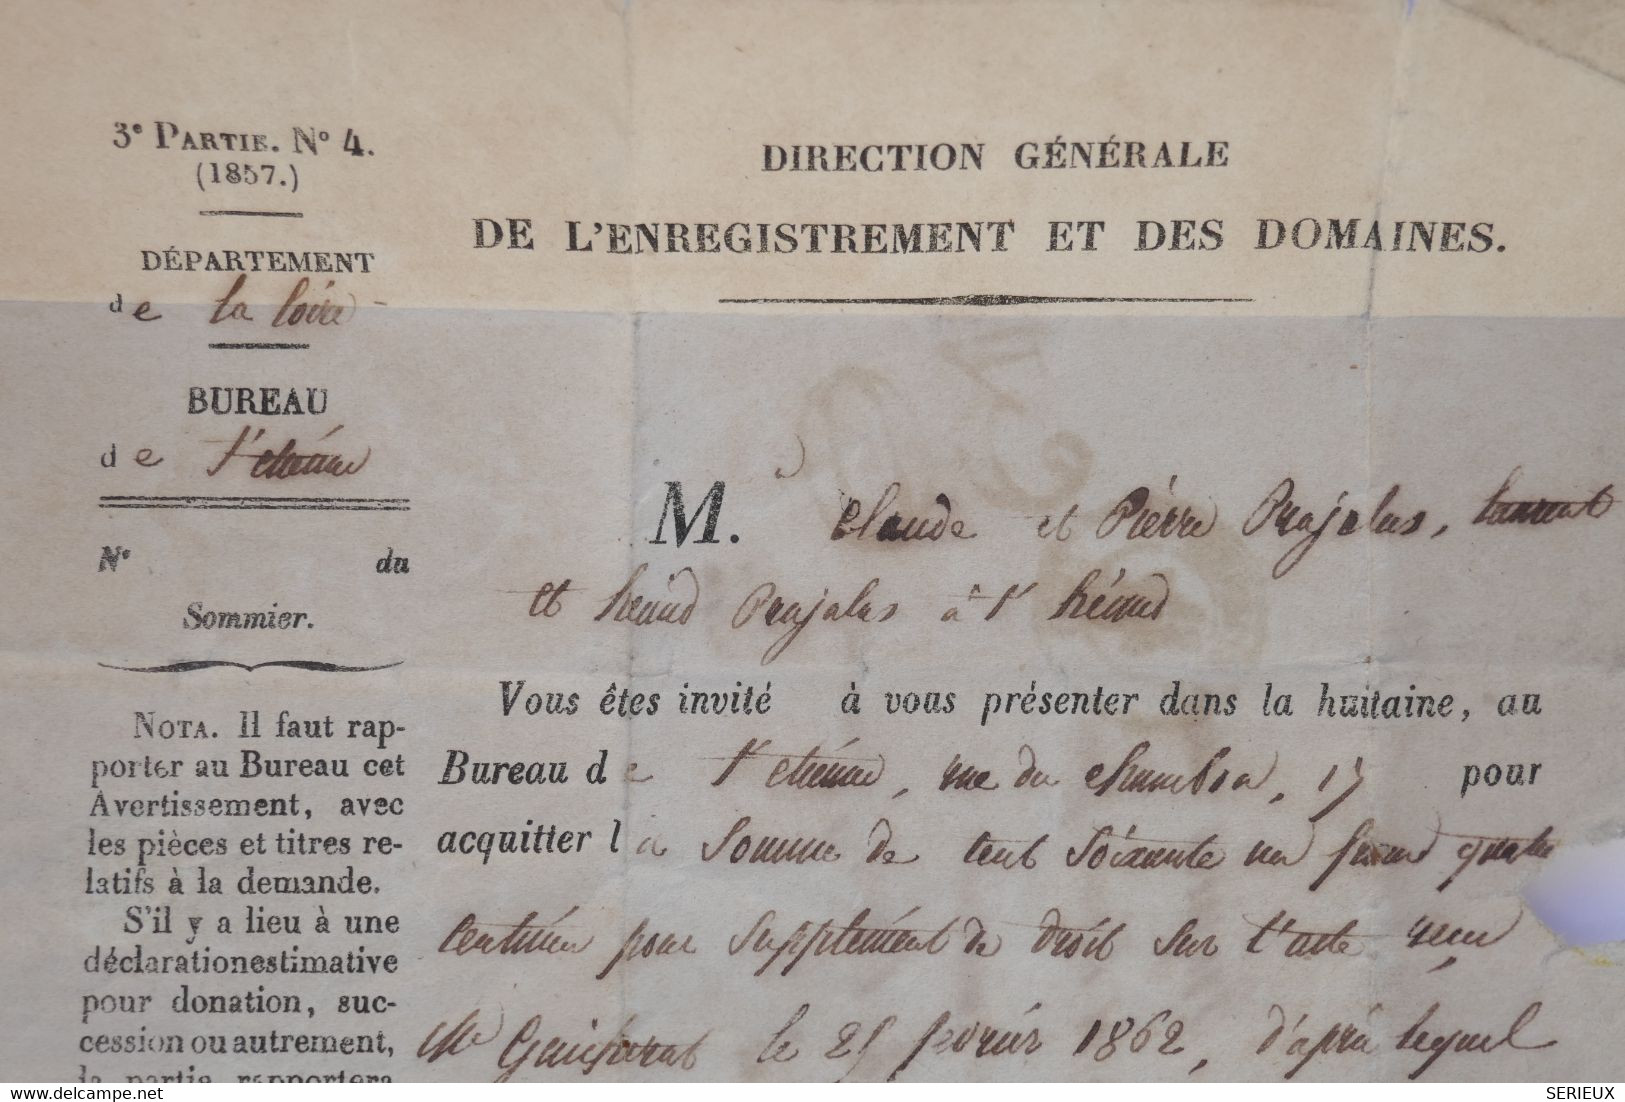 3e PARTIE. No 4.
(1857.)
DÉPARTEMENT
de la loire
BUREAU
de St etienne
No du
Sommier.
NOTA. Il faut rap-
porter au Bureau cet
Avertissement, avec
les pièces et titres re-
latifs à la demande.
S'il y a lieu à une
déclaration estimative
pour donation, suc-
cession ou autrement,
la partie rapportera
DIRECTION GÉNÉRALE
DE L'ENREGISTREMENT ET DES DOMAINES.
M. Claude et Pierre Prajalas, laurent
et heand Prajalas à St héand
Vous êtes invité à vous présenter dans la huitaine, au
Bureau de St etienne, rue du chambon, 17 pour
acquitter la somme de cent soixante un franc quatre
centimes pour supplément de droit sur l'acte recu
Me le 25 février 1862, d'après lequel
delcampe.net
SERIEUX